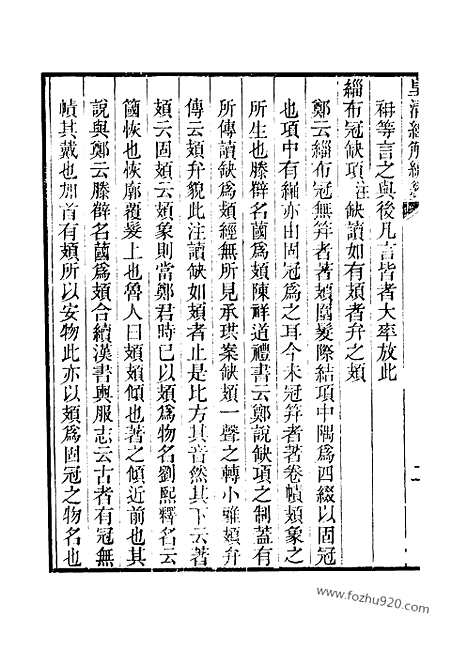 皇清經解續
耕等言之與後凡言皆者大率放此
緇布冠缺項注缺讀如有頍者弁之頍
鄭云緇布冠無笄者著頍圍髮際結項中隅爲四綴以固冠
也項中有𦆯亦由固冠爲之耳今未冠笄者著卷幘頍象之
所生也滕薛名蔮爲頍陳祥道禮書云鄭說缺項之制蓋有
所傳讀缺爲頍經無所見承珙案缺頍一聲之轉小雅頍弁
傳云頍弁貌此注讀缺如頍者止是比方其音然其下云著
頍云固頍云頍象則當鄭君時已以頍爲物名劉熙釋名云
簂恢也恢廓覆髮上也魯人曰頍頍傾也著之傾近前也其
說與鄭云滕薛名蔮爲頍合續漢書輿服志云古者有冠無
幘其戴也加首有頍所以安物此亦以頍爲固冠之物名也
www.fozhu920.com